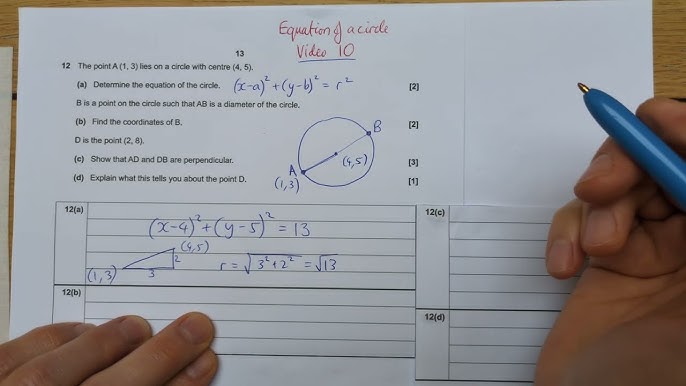 Equation of a circle
Video 10
13
12 The point A (1, 3) lies on a circle with centre (4, 5).
(a) Determine the equation of the circle. (x-a)² + (y-b)² = r² [2]
B is a point on the circle such that AB is a diameter of the circle.
(b) Find the coordinates of B. [2]
B
D is the point (2, 8).
(4,5)
(c) Show that AD and DB are perpendicular. [3]
A
(1,3)
(d) Explain what this tells you about the point D. [1]
12(a)
12(c)
(x-4)² + (y-5)² = 13
(4,5)
2
r = √3²+2² = √13
(1,3)
3
12(b)
12(d)